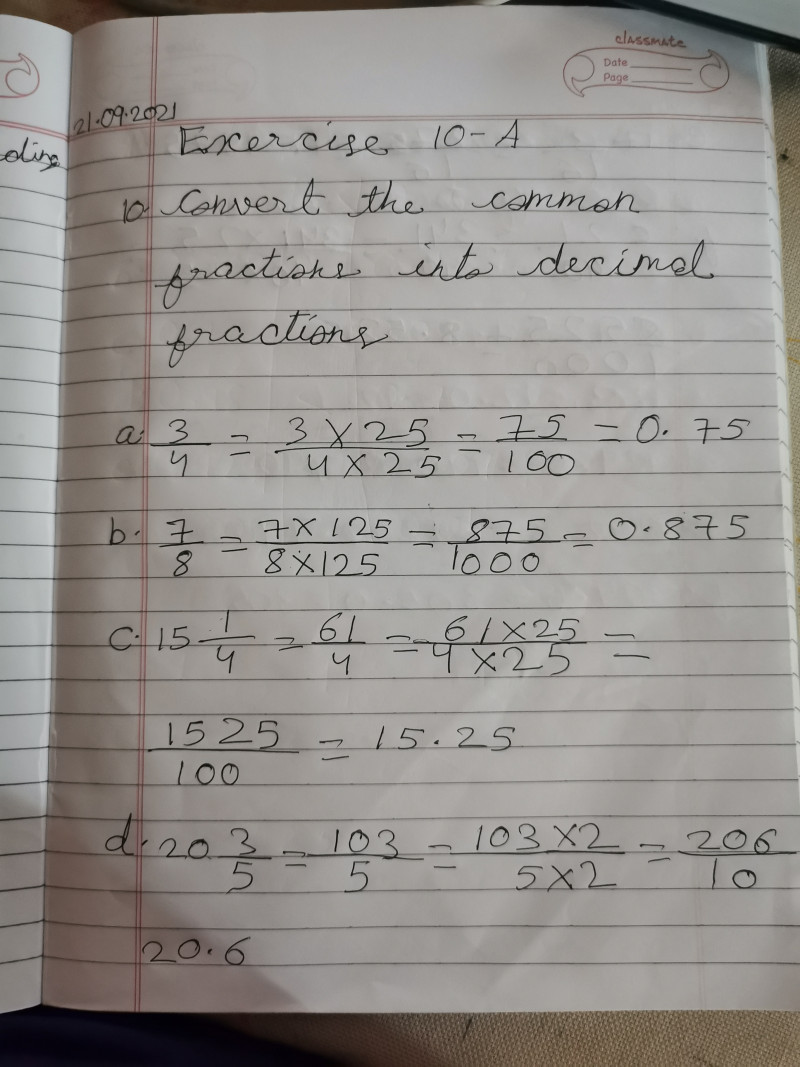 classmate
Date
Page
21.09.2021
Exercise 10-A
10 Convert the common
fractions into decimal
fractions
a. 3/4 = 3 × 25/4 × 25 = 75/100 = 0.75
b. 7/8 = 7 × 125/8 × 125 = 875/1000 = 0.875
c. 15 1/4 = 61/4 = 61 × 25/4 × 25 =
1525/100 = 15.25
d. 20 3/5 = 103/5 = 103 × 2/5 × 2 = 206/10
20.6